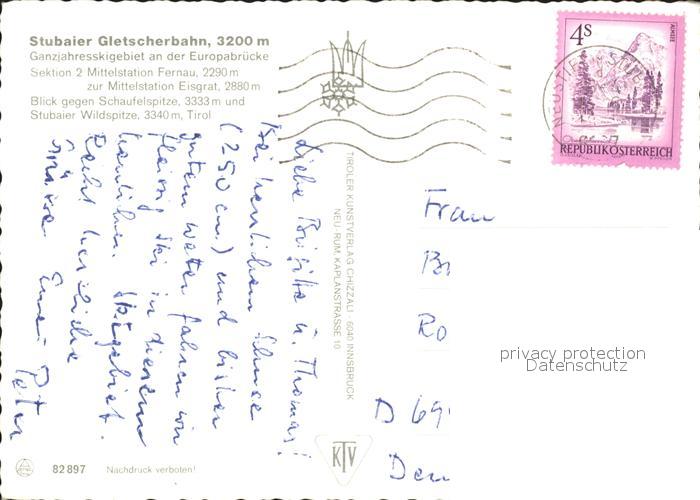 Stubaier Gletscherbahn, 3200 m
Ganzjahresskigebiet an der Europabrücke
Sektion 2 Mittelstation Fernau, 2290 m
zur Mittelstation Eisgrat, 2880 m
Blick gegen Schaufelspitze, 3333 m und
Stubaier Wildspitze, 3340 m, Tirol
4s
ALMSEE
REPUBLIK ÖSTERREICH
NEUSTIFT
Liebe Brigitte u. Thomas!
Bei herrlichem Schnee
(250 cm) und bisher
gutem Wetter fahren wir
fleissig Ski in diesem
herrlichen Skigebiet.
Recht herzliche
Grüsse Eure Peter
TIROLER KUNSTVERLAG CHIZZALI · 6040 INNSBRUCK
NEU-RUM, KAPLANSTRASSE 10
Frau
Br
Ro
D 69
Den
privacy protection
Datenschutz
KTV
82897 Nachdruck verboten!